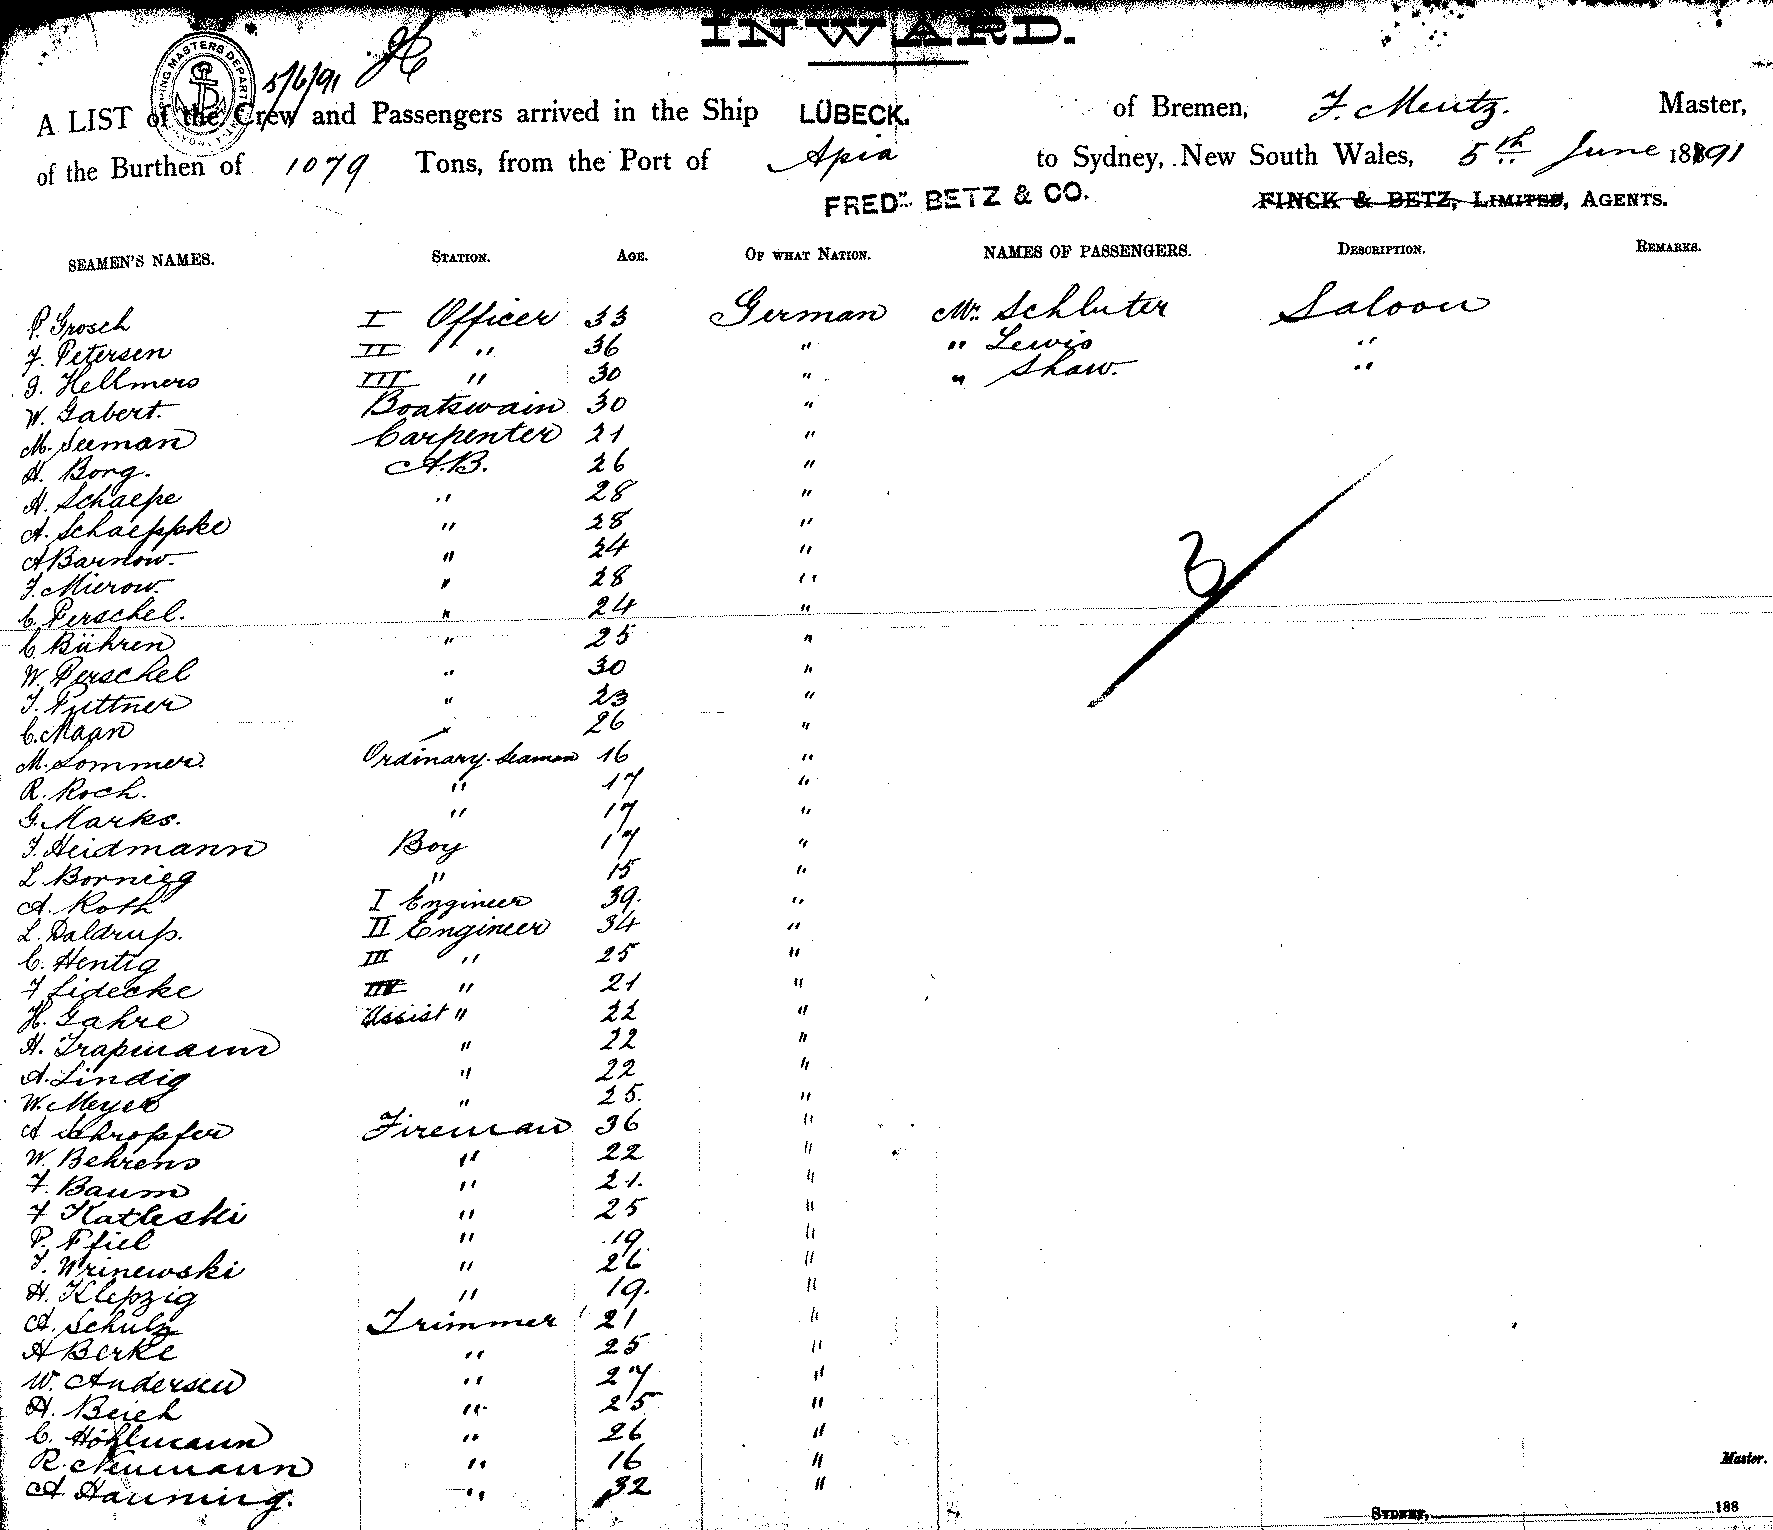 INWARD.
5/6/91
A LIST of the Crew and Passengers arrived in the Ship LÜBECK. of Bremen, F. Mentz. Master,
of the Burthen of 1079 Tons, from the Port of Apia to Sydney, New South Wales, 5th June 18891
FREDK. BETZ & CO. FINCK & BETZ, LIMITED, AGENTS.
SEAMEN'S NAMES. STATION. AGE. OF WHAT NATION. NAMES OF PASSENGERS. DESCRIPTION. REMARKS.
P. Grosch I Officer 33 German Mr. Schluter Saloon
F. Petersen II " 36 " " Lewis "
J. Hellmers III " 30 " " Shaw. "
W. Gabert. Boatswain 30 "
M. Seeman Carpenter 21 "
H. Borg. A.B. 26 "
H. Schaepe " 28 "
A. Schaeppke " 28 "
A Barnow. " 24 "
F. Mierow. " 28 "
C. Perschel. " 24 "
C. Bühren " 25 "
W. Perschel " 30 "
F. Puttner " 23 "
C. Maan " 26 "
M. Sommer. Ordinary Seaman 16 "
R. Koch. " 17 "
G. Marks. " 17 "
F. Heidmann Boy 17 "
L. Bornigg " 15 "
A. Roth I Engineer 39. "
L. Daldrup. II Engineer 34 "
C. Hentig III " 25 "
F Lidecke IV " 21 "
H. Gahre Assist " 22 "
H. Trapmann " 22 "
A. Lindig " 22 "
W. Meyer " 25. "
A Schropfer Fireman 36 "
W. Behrens " 22 "
F. Baum " 21. "
F Katleski " 25 "
P. Pfiel " 19 "
F. Wrinewski " 26 "
H. Klepzig " 19. "
A. Schulz Trimmer 21 "
A Berke " 25 "
W. Andersen " 27 "
H. Beich " 25 "
C. Höhlmann " 26 "
R. Neumann " 16 "
A Hanning. " 32 "
3
Master.
SYDNEY, 188